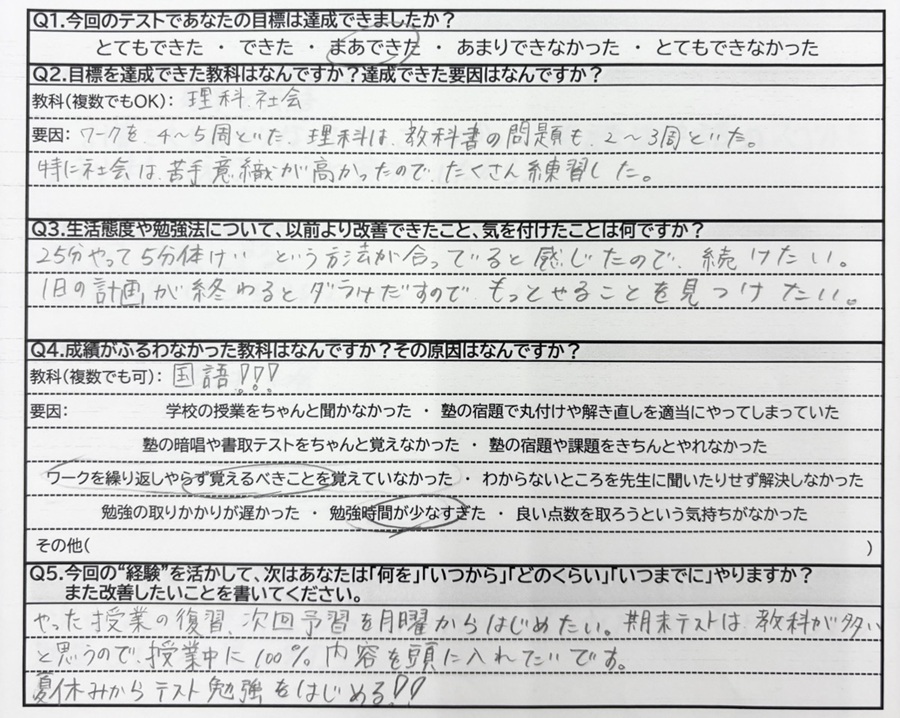 Q1.今回のテストであなたの目標は達成できましたか？
とてもできた ・ できた ・ まあできた ・ あまりできなかった ・ とてもできなかった
Q2.目標を達成できた教科はなんですか？達成できた要因はなんですか？
教科(複数でもOK)： 理科、社会
要因： ワークを、4～5周といた。理科は、教科書の問題も、2～3周といた。
特に社会は、苦手意織が高かったので、たくさん練習した。
Q3.生活態度や勉強法について、以前より改善できたこと、気を付けたことは何ですか？
25分やって5分休けい という方法が合っていると感じたので、続けたい。
1日の計画が終わるとダラけだすので、もっとやることを見つけたい。
Q4.成績がふるわなかった教科はなんですか？その原因はなんですか？
教科(複数でも可)： 国語！！！
要因： 学校の授業をちゃんと聞かなかった ・ 塾の宿題で丸付けや解き直しを適当にやってしまっていた
塾の暗唱や書取テストをちゃんと覚えなかった ・ 塾の宿題や課題をきちんとやれなかった
ワークを繰り返しやらず覚えるべきことを覚えていなかった ・ わからないところを先生に聞いたりせず解決しなかった
勉強の取りかかりが遅かった ・ 勉強時間が少なすぎた ・ 良い点数を取ろうという気持ちがなかった
その他( )
Q5.今回の“経験”を活かして、次はあなたは「何を」「いつから」「どのくらい」「いつまでに」やりますか？
また改善したいことを書いてください。
やった授業の復習、次回予習を月曜からはじめたい。期末テストは、教科が多い
と思うので、授業中に100%内容を頭に入れたいです。
夏休みからテスト勉強をはじめる！！